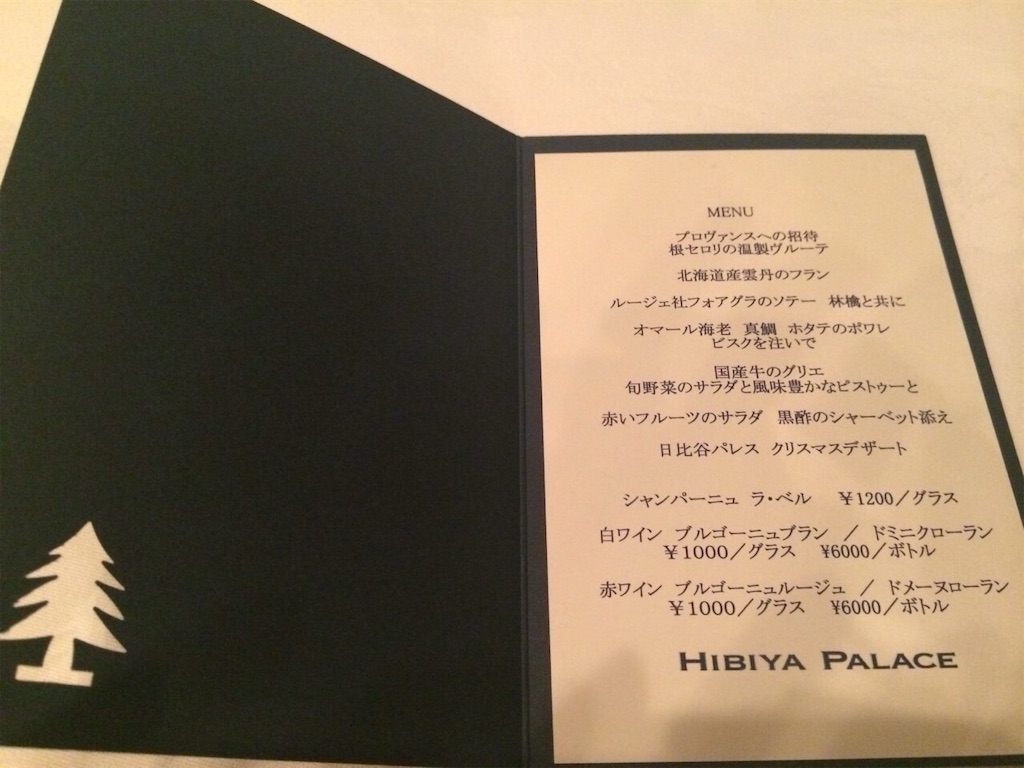 MENU
プロヴァンスへの招待
根セロリの温製ヴルーテ
北海道産雲丹のフラン
ルージェ社フォアグラのソテー 林檎と共に
オマール海老 真鯛 ホタテのポワレ
ビスクを注いで
国産牛のグリエ
旬野菜のサラダと風味豊かなピストゥーと
赤いフルーツのサラダ 黒酢のシャーベット添え
日比谷パレス クリスマスデザート
シャンパーニュ ラ・ベル ￥1200／グラス
白ワイン ブルゴーニュブラン ／ ドミニクローラン
￥1000／グラス ¥6000／ボトル
赤ワイン ブルゴーニュルージュ ／ ドメーヌローラン
￥1000／グラス ¥6000／ボトル
HIBIYA PALACE